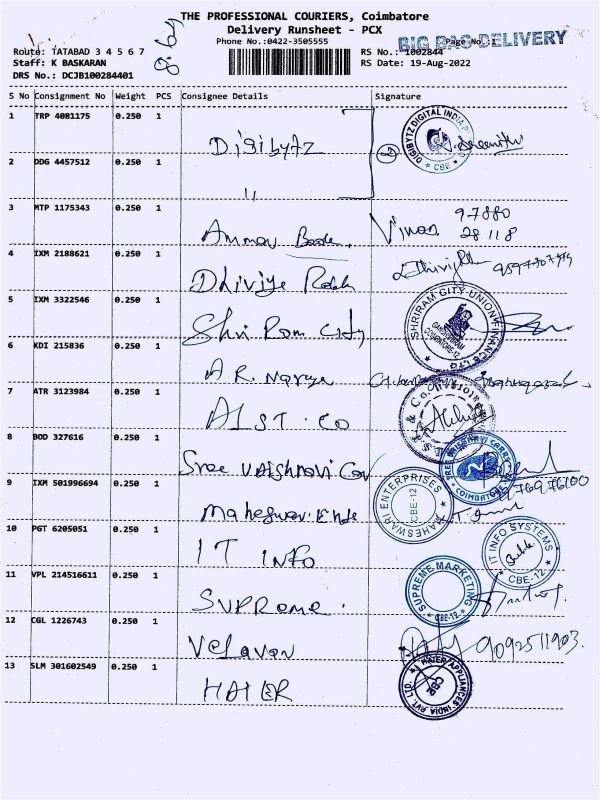 THE PROFESSIONAL COURIERS, Coimbatore
Delivery Runsheet - PCX
Phone No.:0422-3505555
BIG BAG DELIVERY
Page No.:
Route: TATABAD 3 4 5 6 7
RS No.: 1002844
Staff: K BASKARAN
RS Date: 19-Aug-2022
DRS No.: DCJB100284401
S No Consignment No Weight PCS Consignee Details Signature
1 TRP 4081175 0.250 1 Digibytz
DIGIBYTZ DIGITAL INDIA
CBE
2 DDG 4457512 0.250 1 "
3 MTP 1175343 0.250 1 Amman
97880
28118
4 IXM 2188621 0.250 1 Dhiviye
5 IXM 3322546 0.250 1 Shri Ram City
SHRIRAM CITY UNION FINANCE LTD
GANDHIPURAM
COIMBATORE-12
6 KDI 215836 0.250 1 A R.
7 ATR 3123984 0.250 1 & Co
8 BOD 327616 0.250 1 Sree Vaishnavi
COIMBATORE
9 IXM 501996694 0.250 1 Maheswari
MAHESWARI ENTERPRISES
CBE-12
10 PGT 6205051 0.250 1 IT INFO
IT INFO SYSTEMS
CBE-12
11 VPL 214516611 0.250 1 SUPReme
SUPREME MARKETING
CBE-12
12 CGL 1226743 0.250 1 Velavan
9092511903
13 SLM 301602549 0.250 1 HAIER
HAIER APPLIANCES INDIA PVT. LTD.